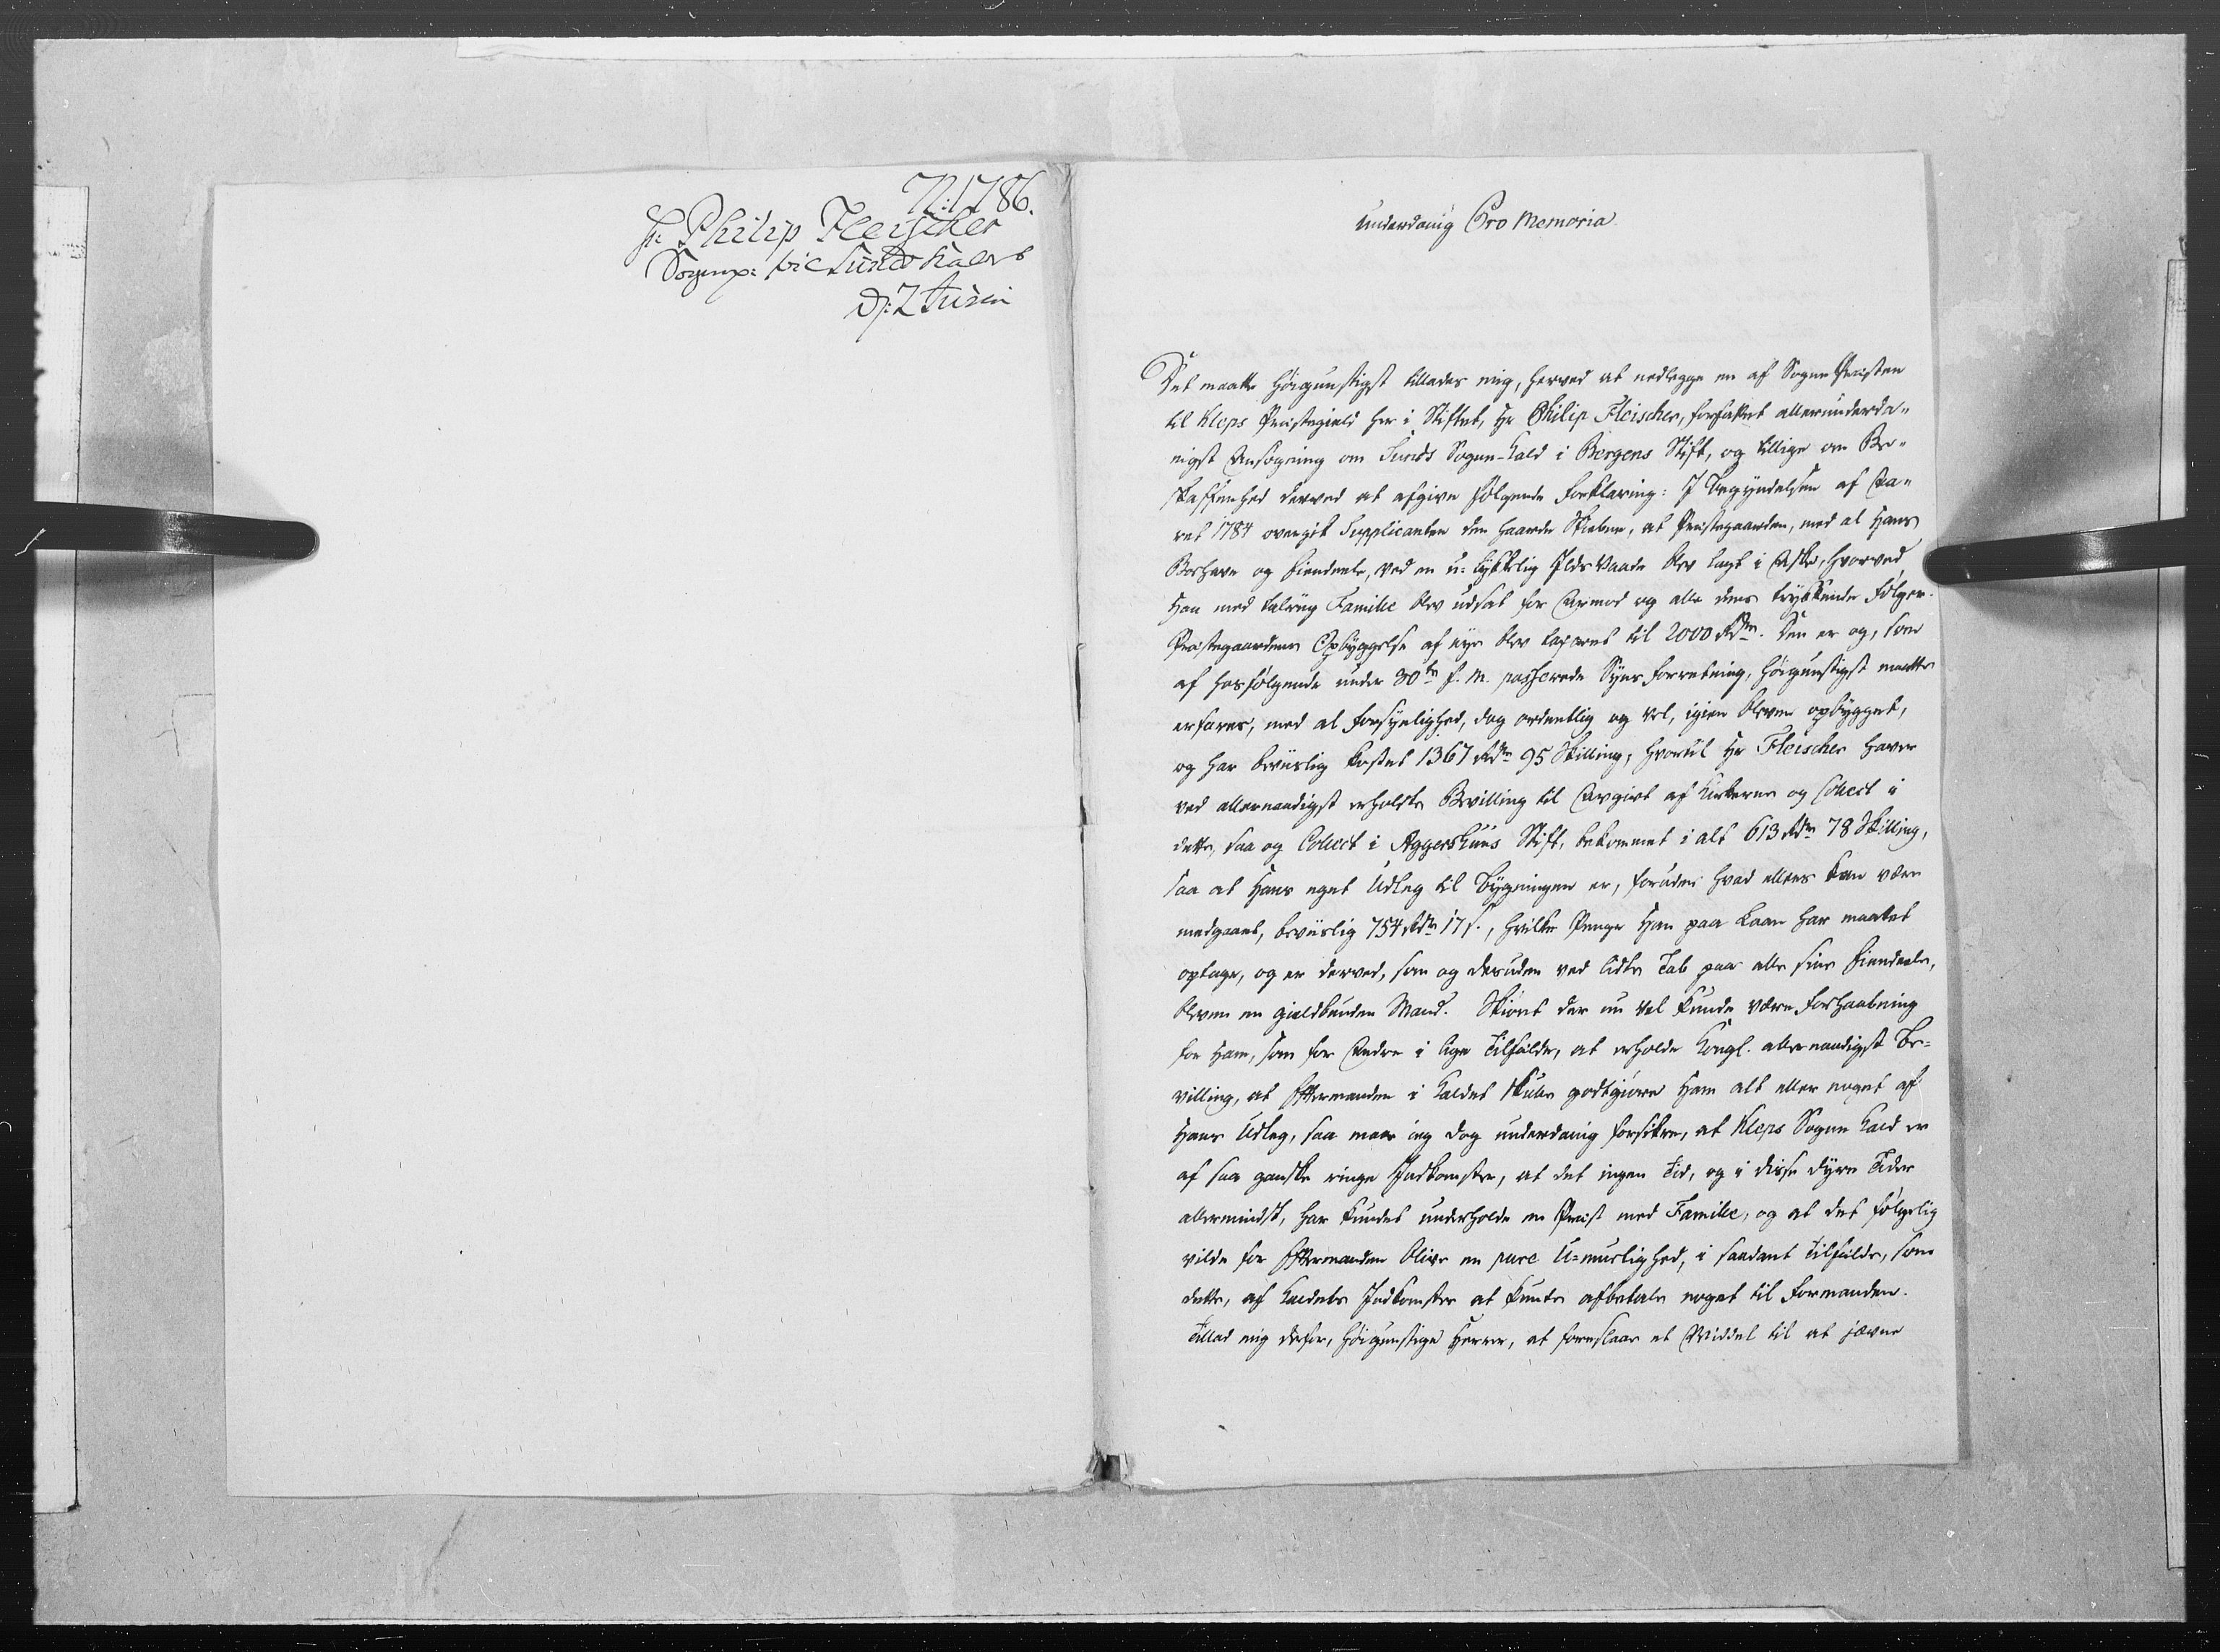 N: 1786.
Hr Philip Fleischer
Sognep: til Sunds Kald
D: 2 Junii
underdanig Pro Memoria
Det maatte Høigunstigst tillades mig, herved at nedlegge en af SognePræsten
til Kleps Præstegield her i Stiftet, Hr Philip Fleischer, forfattet allerunderda-
nigst Ansøgning om Sunds Sogne-Kald i Bergens Stift, og tillige om Be-
skaffenhed derved at afgive følgende Forklaring: I Begyndelsen af Aa-
ret 1784 overgik Supplicanten den haarde Skiebne, at Præstegaarden, med al Hans
Boehave og Eiendeele, ved en u-lykkelig Ildsvaade blev lagt i Aske, hvorved
Han med talrig Familie blev udsat for Armod og alle dens trykkende Følger.
Præstegaardens Opbyggelse af nye blev taxeret til 2000 Rdr. Den er og, som
af hosfølgende under 30te f. M. passerede Syns Forretning, Høigunstigst maatte
erfares, med al Forsynlighed, dog ordentlig og vel, igien bleven opbygget,
og har beviislig kostet 1367 Rdr 95 Skilling, hvortil Hr Fleischer haver
ved allernaadigst erholdte Bevilling til Avgivt af Kirkerne og Collect i
dette, saa og Collect i Aggershuus Stift, bekommet i alt 613 Rdr 78 Skilling,
saa at Hans eget Udleg til Bygningen er, foruden hvad ellers kan være
medgaaet, beviislig 754 Rdr 17 s., hvilke Penge Han paa Laan har maattet
optage, og er derved, som og desuden ved lidte Tab paa alle sine Eiendeele,
bleven en gieldbunden Mand. Skiønt der nu vel kunde være Forhaabning
for Ham, som for Andre i lige Tilfælde, at erholde Kongl. allernaadigst Be-
villing, at Eftermanden i Kaldet skulle godtgiøre Ham alt eller noget af
Hans Udleg, saa maae jeg dog underdanig forsikre, at Kleps Sogne Kald er
af saa gandske ringe Indkomster, at det ingen Tid, og i disse dyre Tider
allermindst, har kundet underholde en Præst med Familie, og at det følgelig
vilde for Eftermanden blive en pure U-muelighed, i saadant Tilfælde, som
dette, af Kaldets Indkomster at kunde afbetale noget til Formanden.
Tillad mig derfor, Høigunstige Herrer, at foreslaae et Middel til at jævne